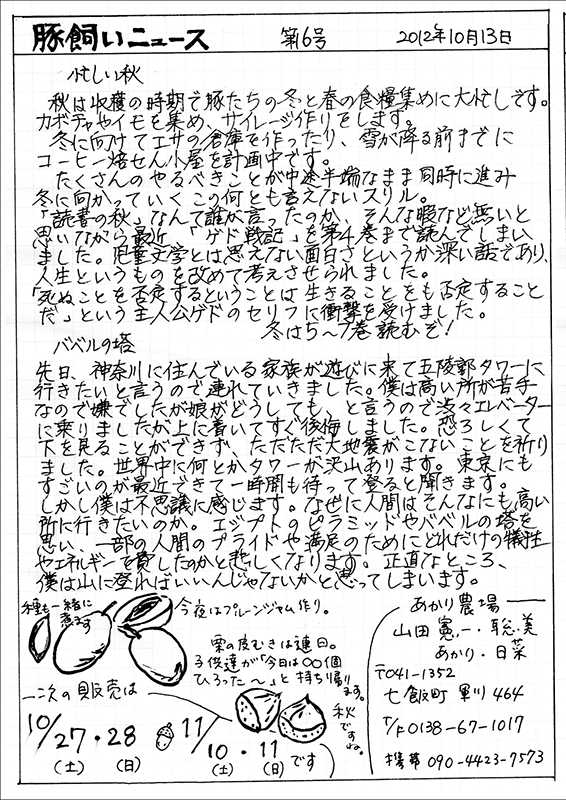 豚飼いニュース 第6号 2012年10月13日
忙しい秋
秋は収穫の時期で豚たちの冬と春の食糧集めに大忙しです。
カボチャやイモを集め、サイレージ作りをします。
冬に向けてエサの倉庫を作ったり、雪が降る前までに
コーヒー焙せん小屋を計画中です。
たくさんのやるべきことが中途半端なまま同時に進み
冬に向かっていくこの何とも言えないスリル。
「読書の秋」なんて誰が言ったのか、そんな暇など無いと
思いながら最近「ゲド戦記」を第4巻まで読んでしまい
ました。児童文学とは思えない面白さというか深い話であり、
人生というものを改めて考えさせられました。
「死ぬことを否定するということは生きることをも否定すること
だ」という主人公ゲドのセリフに衝撃を受けました。
冬は5〜7巻読むぞ!
バベルの塔
先日、神奈川に住んでいる家族が遊びに来て五陵郭タワーに
行きたいと言うので連れていきました。僕は高い所が苦手
なので嫌でしたが娘がどうしても、と言うので渋々エレベーター
に乗りましたが上に着いてすぐ後悔しました。恐ろしくて
下を見ることができず、ただただ大地震がこないことを祈り
ました。世界中に何とかタワーが沢山あります。東京にも
すごいのが最近できて一時間も待って登ると聞きます。
しかし僕は不思議に感じます。なぜに人間はそんなにも高い
所に行きたいのか。エジプトのピラミッドやバベルの塔を
思い、一部の人間のプライドや満足のためにどれだけの犠牲
やエネルギーを費したのかと悲しくなります。正直なところ、
僕は山に登ればいいんじゃないかと思ってしまいます。
種も一緒に
煮ます
今夜はプルーンジャム作り。
栗の皮むきは連日。
子供達が「今日は○○個
ひろった〜」と持ち帰り
ます。
秋
ですね。
次の販売は
10/27・28 11/10・11です
(土) (日) (土) (日)
あかり農場
山田憲一・聡美
あかり・日菜
〒041-1352
七飯町軍川464
T/F 0138-67-1017
携帯 090-4423-7573